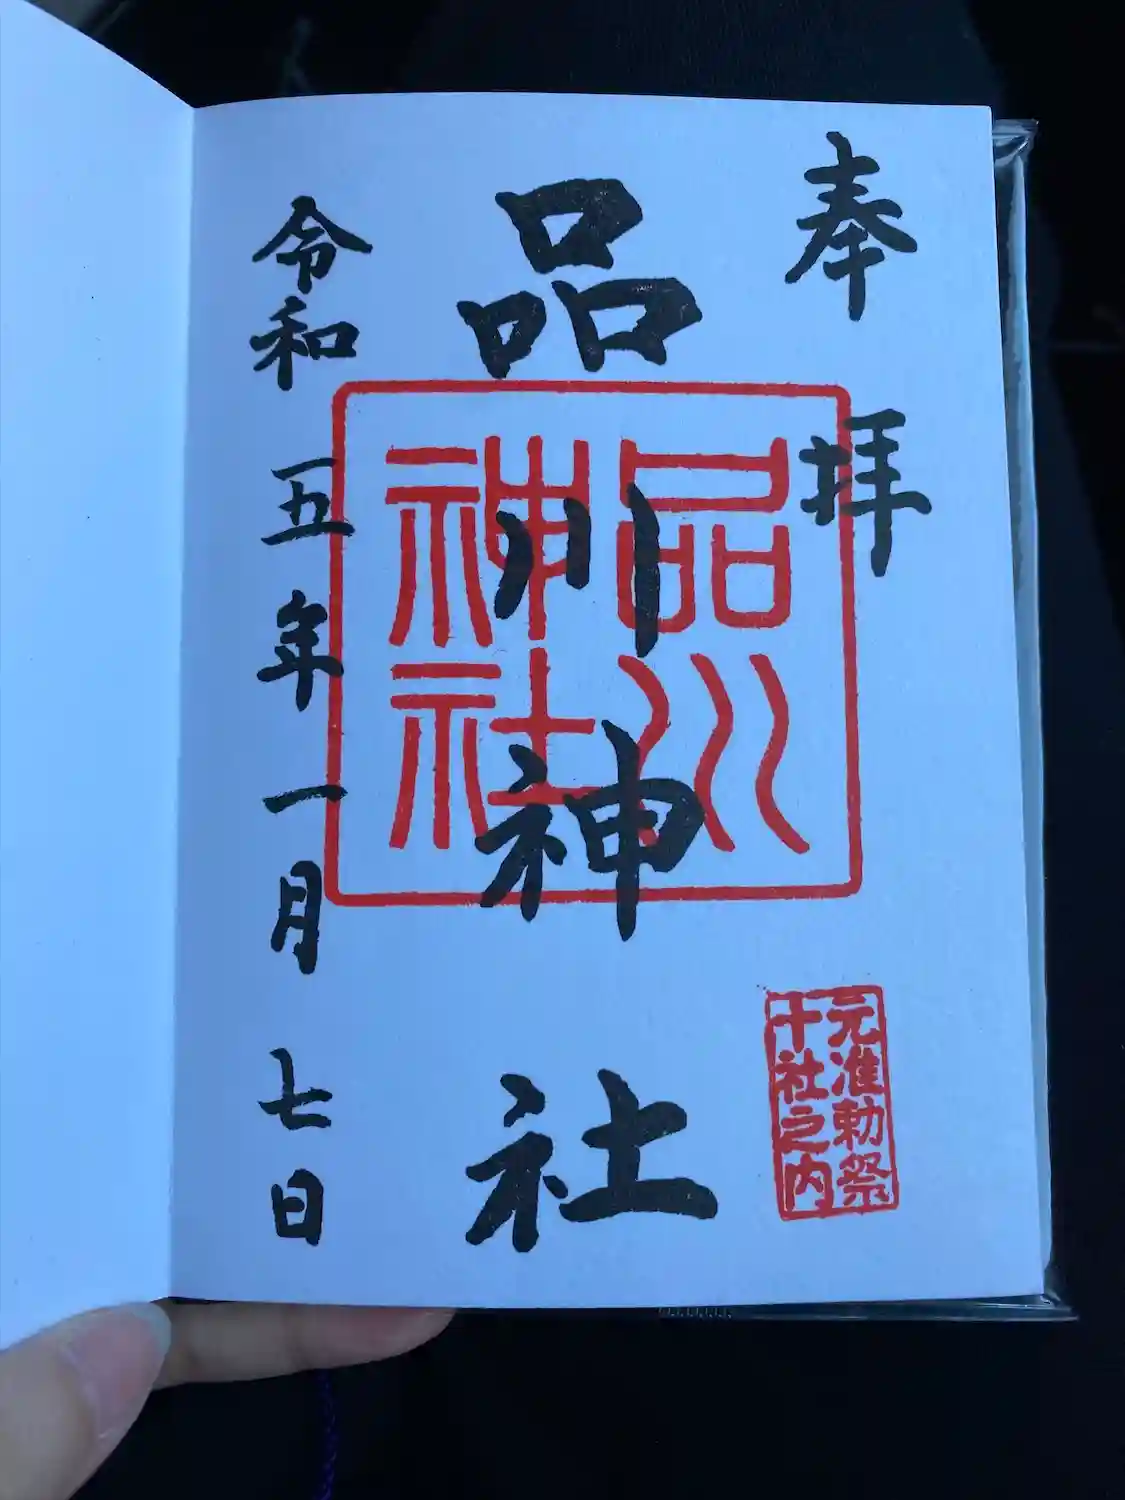 奉拝
品川神社
品川
神社
元准勅祭
十社之内
令和五年一月七日